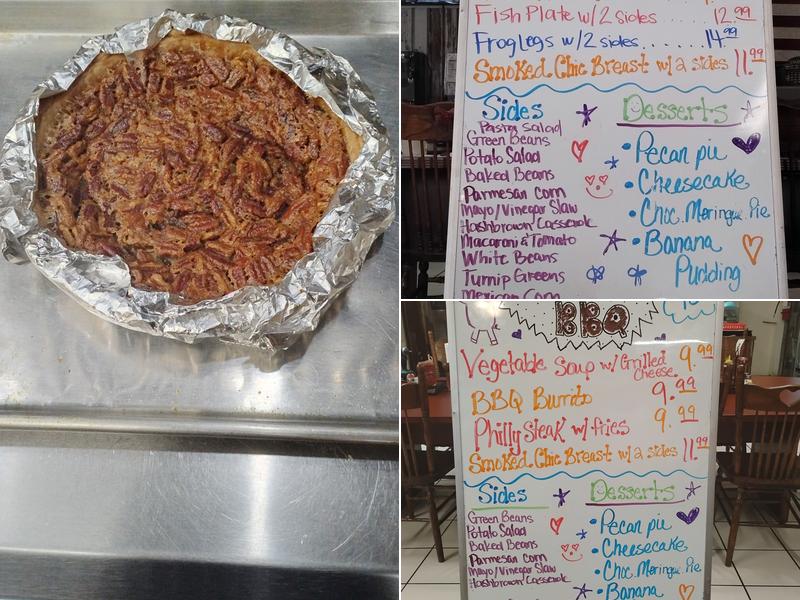 Fish Plate w/2 sides ..... 12.99
Frog Legs w/2 sides ...... 14.99
Smoked Chic Breast w/2 sides 11.99
Sides
Pasta Salad
Green Beans
Potato Salad
Baked Beans
Parmesan corn
Mayo/Vinegar Slaw
Hashbrown Casserole
Macaroni & Tomato
White Beans
Turnip Greens
Mexican Corn
Desserts
• Pecan pie
• Cheesecake
• Choc. Meringue Pie
• Banana
Pudding
BBQ
Vegetable Soup w/ Grilled
Cheese 9.99
BBQ Burrito 9.99
Philly Steak w/ fries 9.99
Smoked Chic Breast w/2 sides 11.99
Sides
Green Beans
Potato Salad
Baked Beans
Parmesan corn
Mayo/Vinegar Slaw
Hashbrown Casserole
Desserts
• Pecan pie
• Cheesecake
• Choc. Meringue Pie
• Banana